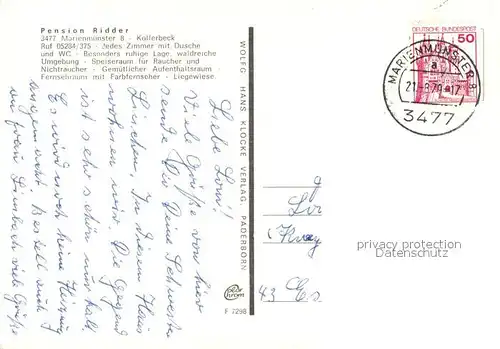 Pension Ridder
3477 Marienmünster 8 - Kollerbeck
Ruf 05284/375 - Jedes Zimmer mit Dusche
und WC - Besonders ruhige Lage, waldreiche
Umgebung - Speiseraum für Raucher und
Nichtraucher - Gemütlicher Aufenthaltsraum -
Fernsehraum mit Farbfernseher - Liegewiese.
Liebe Loni!
Viele Grüße von hier
sendet Dir Deine Schwester
Lieschen, In diesem Haus
wohnen wir. Die Gegend
ist sehr schön nur kalt.
Es wird noch keine Heizung
angemacht. Bestell auch
an Frau Limbach viele Grüße
WOLFG. HANS KLOCKE VERLAG, PADERBORN
F 7298
DEUTSCHE BUNDESPOST
50
MARIENMÜNSTER 8
a
21.-8.79-17
3477
43 Es
privacy protection
Datenschutz